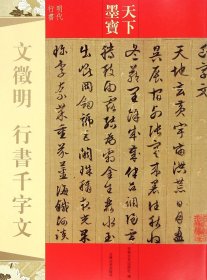 天下
墨寶
明代
行書
文徵明 行書千字文
天地玄黃宇宙洪荒日月盈
昃辰宿列張寒來暑往秋收
冬藏閏餘成歲律呂調陽雲騰
致雨露結為霜金生麗水玉
出崑岡劍號巨闕珠稱夜光果
珍李柰菜重芥薑海鹹河淡